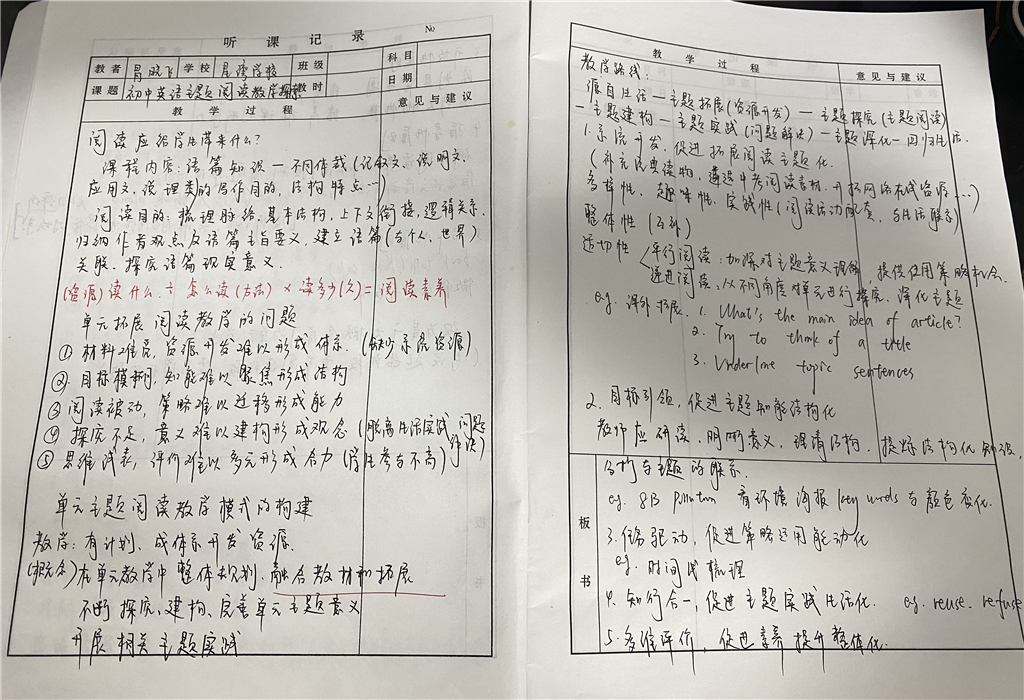 听课记录 No
教者 肖晓飞 学校 星湾学校 班级 科目
课题 初中英语主题阅读教学探索 教时 日期
教学过程 意见与建议
阅读应给学生带来什么?
课程内容:语篇知识一不同体裁(记叙文、说明文、
应用文、说理类的写作目的,结构特点…)
阅读目的:梳理脉络、基本结构,上下文衔接,逻辑关系.
归纳作者观点及语篇主旨要义,建立语篇(与个人、世界)
关联、探究语篇现实意义.
(资源)读什么 + 怎么读(方法) × 读多少(久) = 阅读素养
单元拓展阅读教学的问题
① 材料难觅,资源开发难以形成体系.(缺少系统资源)
② 目标模糊,知能难以聚焦形成结构
③ 阅读被动,策略难以迁移形成能力
④ 探究不足,意义难以建构形成观念(脱离生活实践 问题解决)
⑤ 思维浅表,评价难以多元形成合力(学生参与不高)
单元主题阅读教学模式的构建
教学:有计划、成体系开发资源.
(概念)在单元教学中整体规划、融合教材和拓展
不断探究、建构、完善单元主题意义
开展相关主题实践
教学过程 意见与建议
教学路线:
源自生活一主题拓展(资源开发)一主题探究(主题阅读)
一主题建构一主题实践(问题解决)一主题深化一回归生活.
1.系统开发,促进拓展阅读主题化.
(补充经典读物,遴选中考阅读素材,开拓网络在线资源…)
多样性、趣味性、实践性(阅读活动配套,与生活联系)
整体性(互补)
适切性 平行阅读:加深对主题意义理解 提供使用策略机会.
递进阅读:从不同角度对单元进行探究.深化主题
e.g. 课外拓展. 1. What's the main idea of article?
2. Try to think of a title
3. Underline topic sentences
2.目标引领,促进主题知能结构化
教师应研读,明晰意义,理清结构,提炼结构化知识.
板书
结构与主题的联系.
eg. 8B Pollution 看环境海报 key words 与颜色变化.
3.任务驱动,促进策略运用能动化
eg. 时间线梳理
4.知行合一,促进主题实践生活化. e.g. reuse. refuse
5.多维评价,促进素养提升整体化.